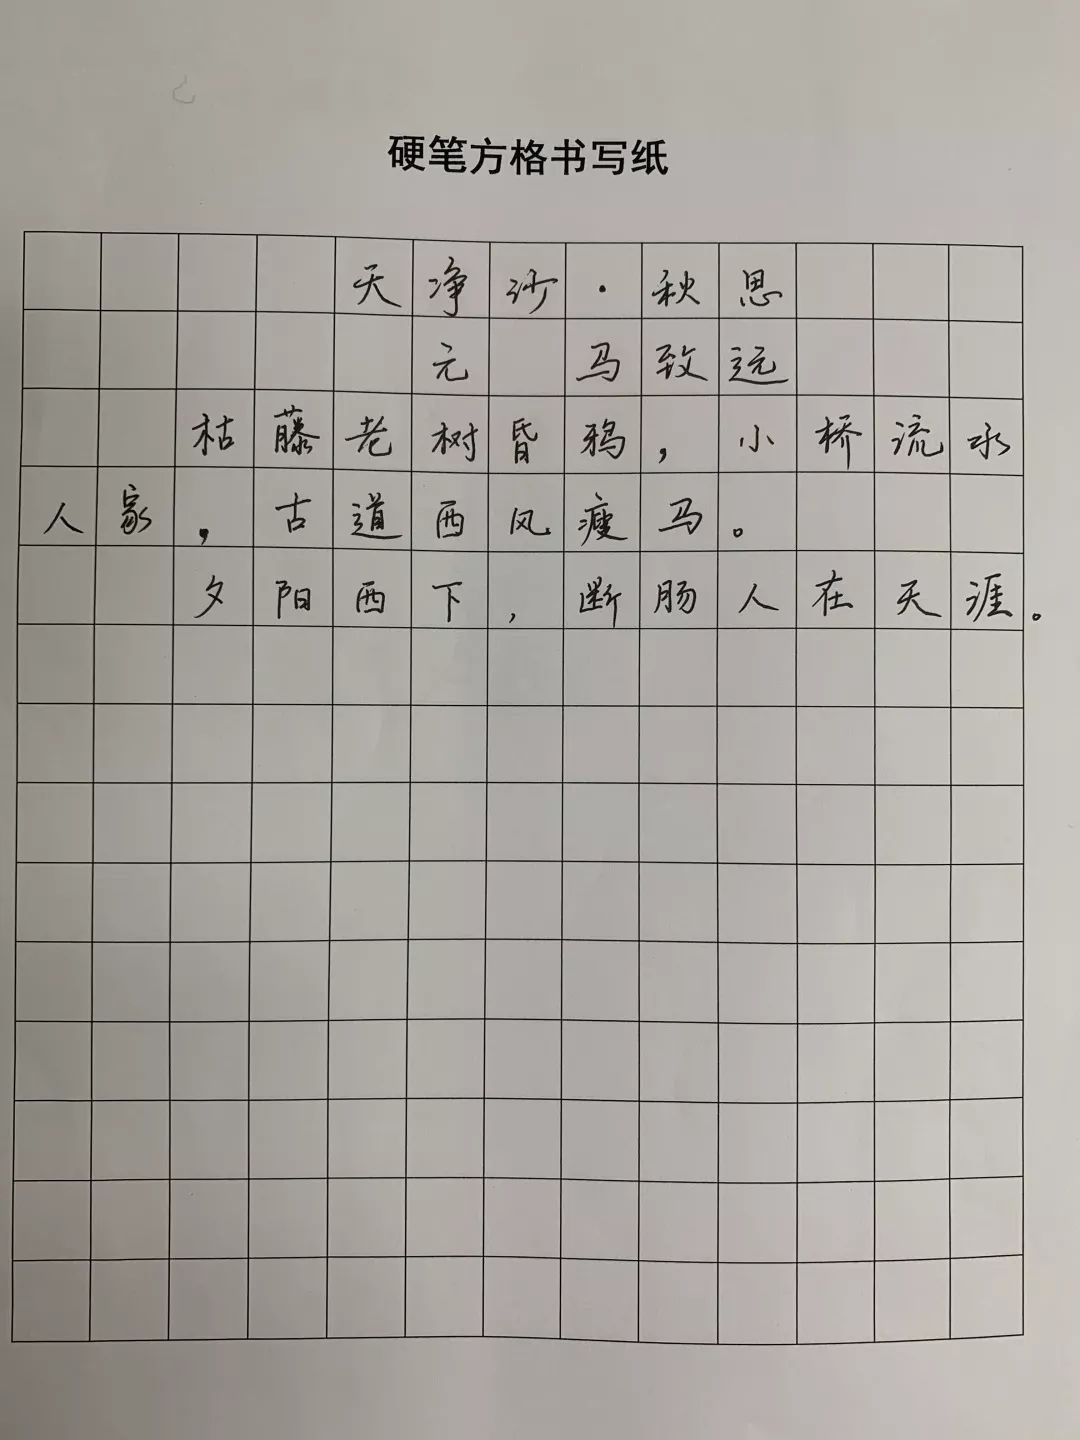 硬笔方格书写纸
天净沙·秋思
元 马致远
枯藤老树昏鸦，小桥流水
人家，古道西风瘦马。
夕阳西下，断肠人在天涯。